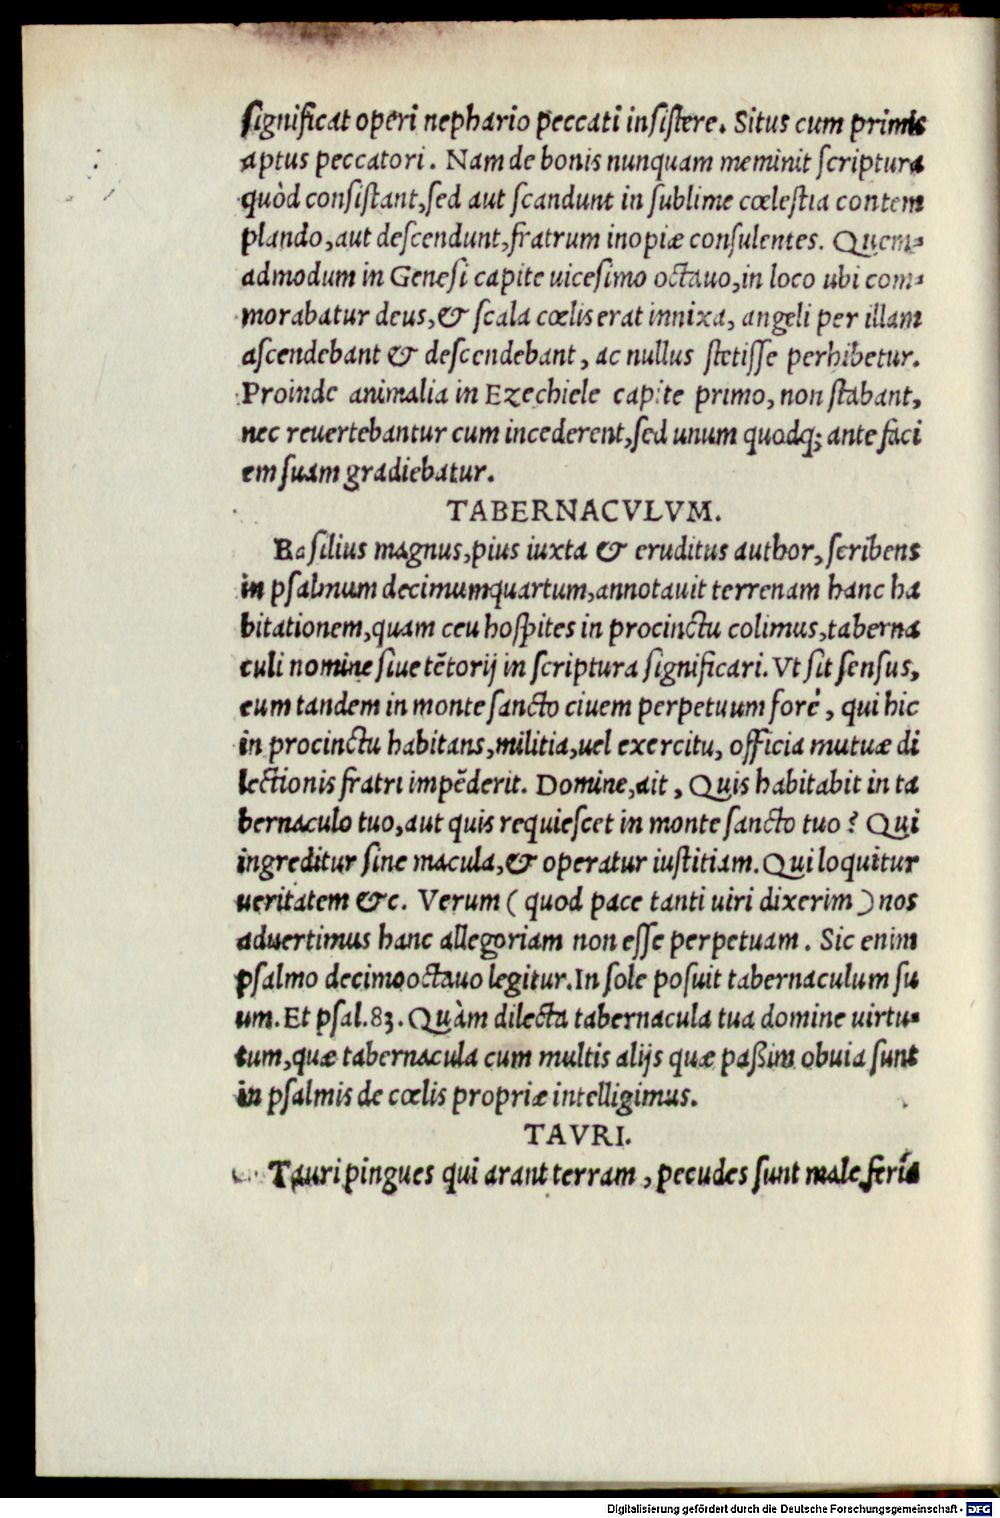 significat operi nephario peccati insistere. Situs cum primis
aptus peccatori. Nam de bonis nunquam meminit scriptura
quòd consistant, sed aut scandunt in sublime cœlestia contem
plando, aut descendunt, fratrum inopiæ consulentes. Quem-
admodum in Genesi capite uicesimo octauo, in loco ubi com-
morabatur deus, & scala cœlis erat innixa, angeli per illam
ascendebant & descendebant, ac nullus stetisse perhibetur.
Proinde animalia in Ezechiele capite primo, non stabant,
nec reuertebantur cum incederent, sed unum quodq; ante faci
em suam gradiebatur.
TABERNACVLVM.
Basilius magnus, pius iuxta & eruditus author, scribens
in psalmum decimumquartum, annotauit terrenam hanc ha
bitationem, quam ceu hospites in procinctu colimus, taberna
culi nomine siue tẽtorij in scriptura significari. Vt sit sensus,
eum tandem in monte sancto ciuem perpetuum fore, qui hic
in procinctu habitans, militia, uel exercitu, officia mutuæ di
lectionis fratri impẽderit. Domine, ait, Quis habitabit in ta
bernaculo tuo, aut quis requiescet in monte sancto tuo? Qui
ingreditur sine macula, & operatur iustitiam. Qui loquitur
ueritatem &c. Verum (quod pace tanti uiri dixerim) nos
aduertimus hanc allegoriam non esse perpetuam. Sic enim
psalmo decimooctauo legitur. In sole posuit tabernaculum su
um. Et psal. 83. Quàm dilecta tabernacula tua domine uirtu-
tum, quæ tabernacula cum multis alijs quæ paßim obuia sunt
in psalmis de cœlis propriæ intelligimus.
TAVRI.
Tauri pingues qui arant terram, pecudes sunt male feria
Digitalisierung gefördert durch die Deutsche Forschungsgemeinschaft - DFG